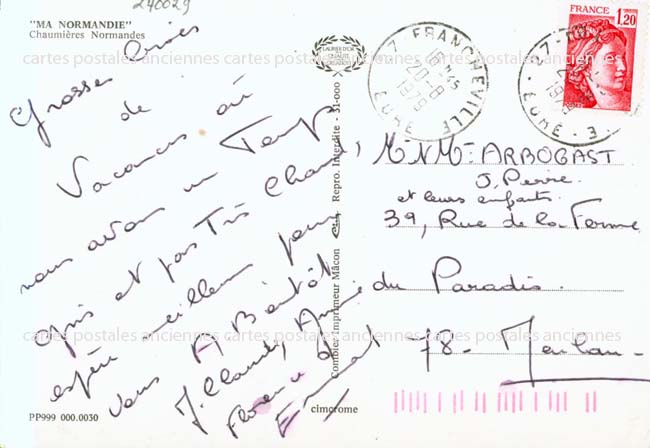 240029
"MA NORMANDIE"
Chaumières Normandes
Grosses Bises
de
Vacances où
nous avons un Temps
gris et pas Très Chaud,
espère meilleur pour
vous A Bientôt
J. Claude, Annie
Florence et
Emmanuel
PP999 000.0030
cimcrome
Combier Imprimeur Mâcon
Repro. Interdite - 31-000
LAURIER D'OR
27 FRANCHEVILLE
18H45
20-8
1979
EURE
FRANCE
1,20
M. M. ARBOGAST
J. Pierre.
et leurs enfants.
39, Rue de la Ferme
du Paradis.
78 - Meulan -
cartes postales anciennes cartes postales anciennes cartes postales anciennes
cartes postales anciennes cartes postales anciennes cartes postales anciennes